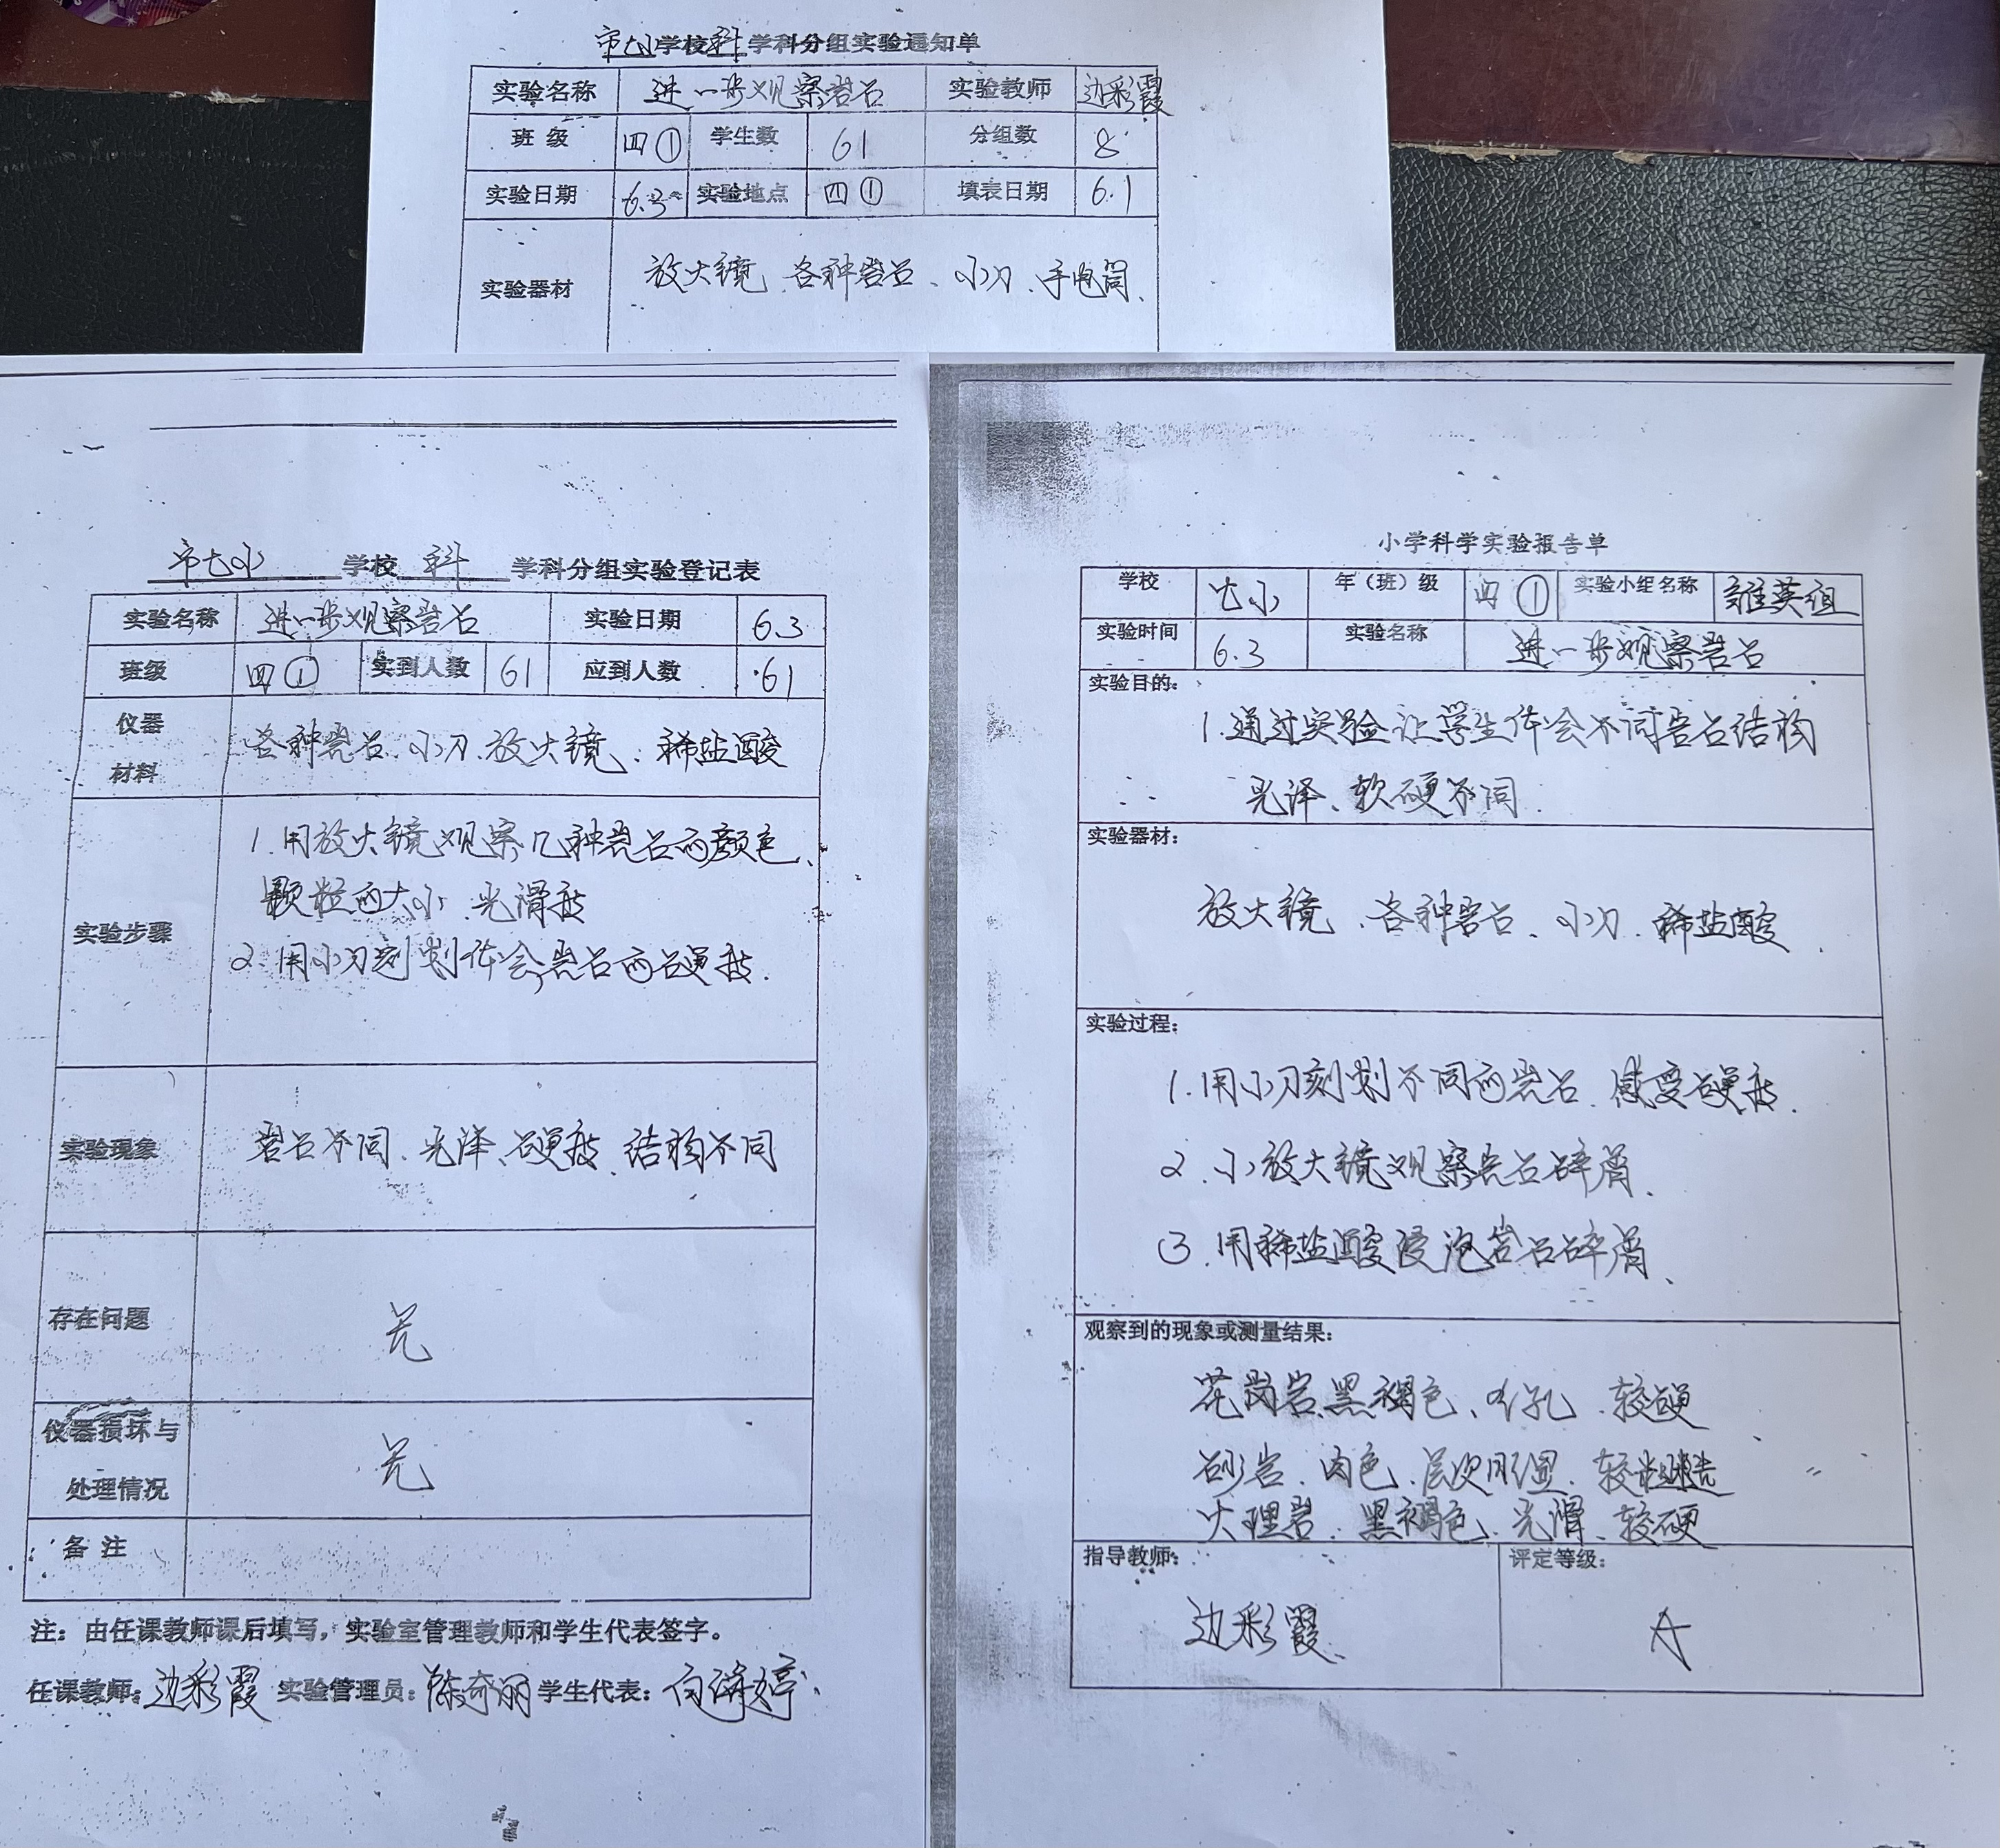 市七小学校 科 学科分组实验通知单
实验名称 进一步观察岩石 实验教师 边彩霞
班 级 四① 学生数 61 分组数 8
实验日期 6.3 实验地点 四① 填表日期 6.1
实验器材 放大镜、各种岩石、小刀、手电筒、
市七小 学校 科 学科分组实验登记表
实验名称 进一步观察岩石 实验日期 6.3
班级 四① 实到人数 61 应到人数 61
仪器
材料
各种岩石、小刀、放大镜、稀盐酸
实验步骤
1.用放大镜观察几种岩石的颜色、
颗粒的大小、光滑度
2.用小刀刻划体会岩石的硬度.
实验现象 岩石不同、光泽、硬度、结构不同
存在问题 无
仪器损坏与
处理情况
无
备 注
注：由任课教师课后填写，实验室管理教师和学生代表签字。
任课教师：边彩霞 实验管理员：陈奇丽 学生代表：
小学科学实验报告单
学校 七小 年（班）级 四① 实验小组名称 雄英组
实验时间 6.3 实验名称 进一步观察岩石
实验目的：
1.通过实验让学生体会不同岩石结构
光泽、软硬不同.
实验器材：
放大镜、各种岩石、小刀、稀盐酸
实验过程：
1.用小刀刻划不同的岩石、感受硬度.
2.小放大镜观察岩石碎屑、
3.用稀盐酸浸泡岩石碎屑、
观察到的现象或测量结果：
花岗岩、黑褐色、小孔、较硬
砂岩、肉色、层次明显、较粗糙
大理岩、黑褐色、光滑、较硬
指导教师： 评定等级：
边彩霞、 A